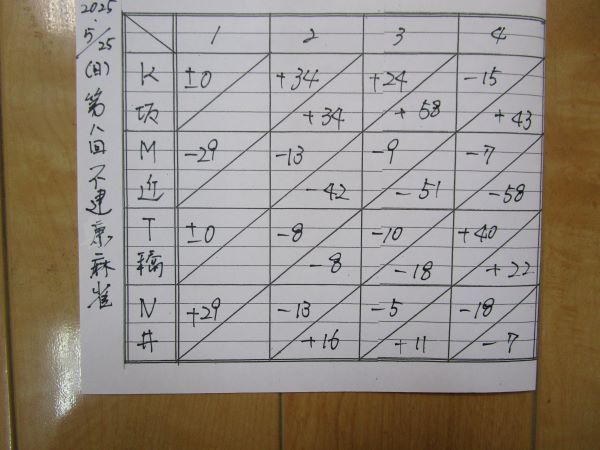 2025.
5/25
(日)
第八回不連京麻雀
1 2 3 4
K坂 ±0 +34 +24 -15
+34 +58 +43
M近 -29 -13 -9 -7
-42 -51 -58
T ±0 -8 -10 +40
-8 -18 +22
N井 +29 -13 -5 -18
+16 +11 -7